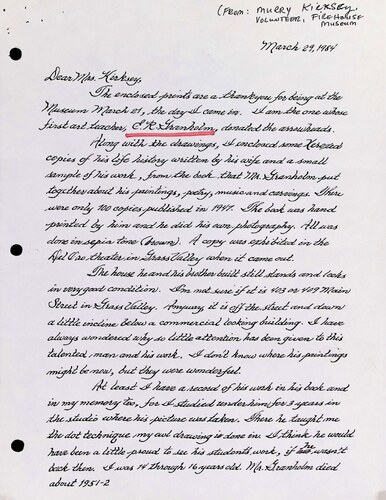 (FROM: MURRY KIRKSEY
VOLUNTEER, FIREHOUSE
MUSEUM
March 29, 1984
Dear Mrs. Kerksey,
The enclosed prints are a thankyou for being at the
Museum March 21, the day I came in. I am the one whose
first art teacher, E.R. Granholm, donated the arrowheads.
Along with the drawings, I enclosed some Xeroxed
copies of his life history written by his wife and a small
sample of his work, from the book that Mr. Granholm put
together about his paintings, poetry, music and carvings. There
were only 100 copies published in 1947. The book was hand
printed by him and he did his own photography. All was
done in sepia tone (brown). A copy was exhibited in the
Del Oro theater in Grass Valley when it came out.
The house he and his brother built still stands and looks
in very good condition. I'm not sure if it is 403 or 409 Main
Street in Grass Valley. Anyway, it is off the street and down
a little incline below a commercial looking building. I have
always wondered why so little attention has been given to this
talented man and his work. I don't know where his paintings
might be now, but they were wonderful.
At least I have a record of his work in his book and
in my memory too, for I studied under him for 3 years in
the studio where his picture was taken. There he taught me
the dot technique my owl drawing is done in. I think he would
have been a little proud to see his students work, if he wasn't
back then. I was 14 through 16 years old. Mr. Granholm died
about 1951-2